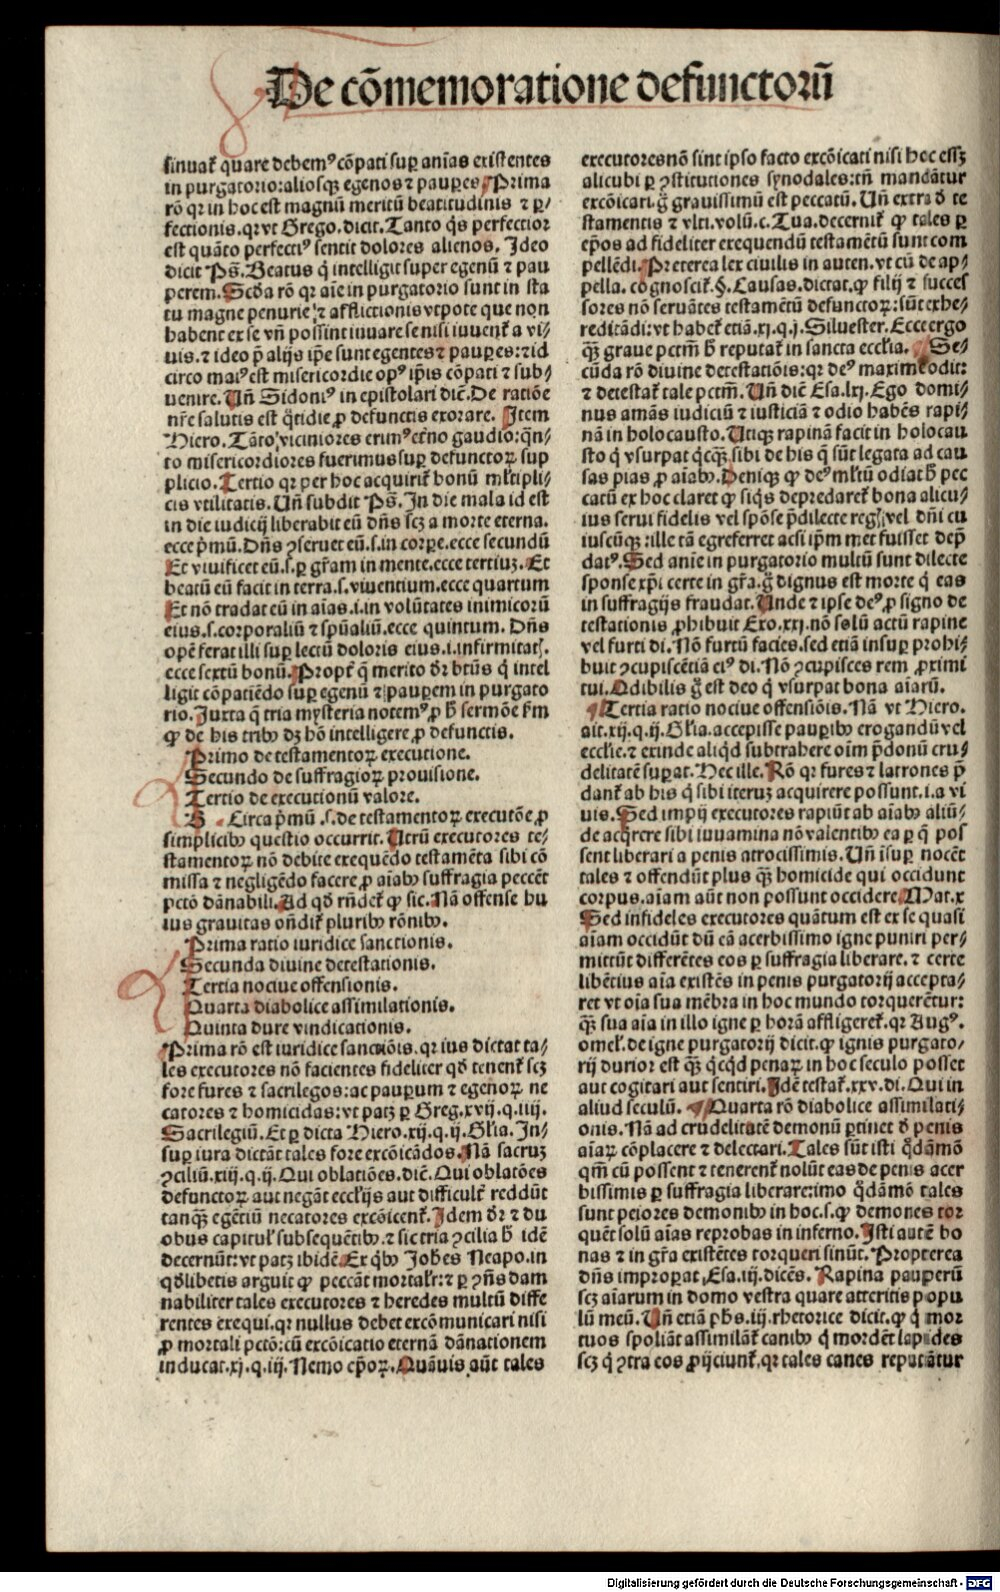 De cōmemoratione defunctorū
sinuat̄ quare debemꝰ cōpati suꝑ anīas existentes
in purgatorio: aliosqꝫ egenos ⁊ pauꝑes. Prima
rō qr in hoc est magnū meritū beatitudinis ⁊ ꝑ/
fectionis. qr vt Grego. dicit. Tanto q̄s perfectior
est quāto perfectiꝰ sentit dolores alienos. Ideo
dicit Ps̄. Beatus q̄ intelligit super egenū ⁊ pau
perem. Scd̄a rō qr aīe in purgatorio sunt in sta
tu magne penurie ⁊ afflictionis vtpote que non
habent ex se vn̄ possint iuuare se nisi iuuent̄ a vi/
uis. ⁊ ideo p̄ alijs ip̄e sunt egentes ⁊ pauꝑes: ⁊ id
circo maiꝰ est misericordie opꝰ ip̄is cōpati ⁊ sub/
uenire. Vn̄ Sidoniꝰ in epistolari diē. De ratiōe
nr̄e salutis est q̄tidie ꝓ defunctis exorare. Item
Hiero. Tāto viciniores erimꝰ etn̄o gaudio: qn̄/
to misericordiores fuerimus suꝑ defunctoꝝ sup
plicio. Tertio qr per hoc acquirit̄ bonū ml̄tipli/
cis vtilitatis. Vn̄ subdit Ps̄. In die mala id est
in die iudicij liberabit eū dn̄s scꝫ a morte eterna.
ecce p̄mū. Dn̄s ꝯseruet eū. s. in corꝑe. ecce secundū
Et viuificet eū. s. ꝑ gr̄am in mente. ecce tertiuꝫ. Et
beatū eū facit in terra. s. viuentium. ecce quartum
Et nō tradat eū in aīas. i. in volūtates inimicorū
eius. s. corporaliū ⁊ spūaliū. ecce quintum. Dn̄s
opē ferat illi suꝑ lectū doloris eius. i. infirmitat̄.
ecce sextū bonū. Propt̄ q̄ merito dr̄ btūs q̄ intel
ligit cōpatiēdo suꝑ egenū ⁊ pauꝑem in purgato
rio. Iuxta q̄ tria mysteria notemꝰ ꝓ h̄ sermōe fm
ꝙ de his tribꝰ dꝫ hō intelligere ꝓ defunctis.
Primo de testamentoꝝ executione.
Secundo de suffragioꝝ prouisione.
Tertio de executionū valore.
B. Circa p̄mū .s. de testamentoꝝ executōe ꝓ
simplicibꝰ questio occurrit. Vtrū executores te/
stamentoꝝ nō debite exequēdo testamēta sibi cō
missa ⁊ negligēdo facere ꝓ aīabꝰ suffragia peccēt
pctō dānabili. Ad qd̄ rn̄det̄ ꝙ sic. Nā offense hu
ius grauitas on̄dit̄ pluribꝰ rōnibꝰ.
Prima ratio iuridice sanctionis.
Secunda diuine detestationis.
Tertia nociue offensionis.
Quarta diabolice assimilationis.
Quinta dure vindicationis.
Prima rō est iuridice sanctiōis. qr ius dictat ta/
les executores nō facientes fideliter qd̄ tenent̄ scꝫ
fore fures ⁊ sacrilegos: ac pauꝑum ⁊ egenoꝝ ne
catores ⁊ homicidas: vt patꝫ ꝑ Greg. xvij. q. iiij.
Sacrilegiū. Et ꝑ dicta Hiero. xij. q. ij. Glīa. In/
suꝑ iura dictāt tales fore excōicādos. Nā sacruꝫ
ꝯciliū. xiij. q. ij. Qui oblatiōes. diē. Qui oblatōes
defunctoꝝ aut negāt eccl̄ijs aut difficult̄ reddūt
tanqꝫ egētiū necatores excōicent̄. Idem dr̄ ⁊ du
obus capitul̄ subsequētibꝰ. ⁊ sic tria ꝯcilia h̄ idē
decernūt: vt patꝫ ibidē. Ex q̄bꝰ Joh̄es Neapo. in
qd̄libetis arguit ꝙ peccāt mortal̄r: ⁊ ꝑ ꝯn̄s dam
nabiliter tales executores ⁊ heredes multū diffe
rentes exequi. qr nullus debet excōmunicari nisi
ꝓ mortali pctō: cū excōicatio eternā dānationem
inducat. xj. q. iij. Nemo ep̄oꝝ. Quāuis aūt tales
executores nō sint ipso facto excōicati nisi hoc esset
alicubi ꝑ ꝯstitutiones synodales: tn̄ mandātur
excōicari. ḡ grauissimū est peccatū. Vn̄ extra d̄ te
stamentis ⁊ vlti. volū. c. Tua. decernit̄ ꝙ tales ꝑ
ep̄os ad fideliter exequendū testamētū sunt com
pellēdi. Preterea lex ciuilis in auten. vt cū de ap/
pella. cognoscit̄. §. Causas. dictat. ꝙ filij ⁊ succes
sores nō seruātes testamētū defunctoꝝ: sūt exhe/
reditādi: vt habet̄ etiā. xj. q. j. Siluester. Ecce ergo
qꝫ graue pctm̄ h̄ reputat̄ in sancta eccl̄ia. Se/
cūda rō diuine detestatiōis: qr deꝰ maxime odit:
⁊ detestat̄ tale pctm̄. Vn̄ diē Esa. lxj. Ego domi/
nus amās iudiciū ⁊ iusticiā ⁊ odio habēs rapi/
nā in holocausto. Vtiqꝫ rapinā facit in holocau
sto q̄ vsurpat qc̄qꝫ sibi de his q̄ sūt legata ad cau
sas pias ꝓ aīabꝰ. Deniqꝫ ꝙ deꝰ ml̄tū odiat h̄ pec
catū ex hoc claret ꝙ siq̄s depredaret̄ bona alicu/
ius serui fidelis vel spōse p̄dilecte regꝭ vel dn̄i cu
iuscūqꝫ: ille tā egre ferret acsi ip̄m met fuisset dep̄
datꝰ. Sed anīe in purgatorio multū sunt dilecte
sponse xp̄i certe in gr̄a. ḡ dignus est morte q̄ eas
in suffragijs fraudat. Vnde ⁊ ipse deꝰ ꝓ signo de
testationis ꝓhibuit Exo. xxj. nō solū actū rapine
vel furti di. Nō furtū facies. sed etiā insuꝑ prohi/
buit ꝯcupiscētiā eiꝰ di. Nō ꝯcupisces rem ꝓximi
tui. Odibilis ḡ est deo q̄ vsurpat bona aīarū.
Tertia ratio nociue offensiōis. Nā vt Hiero.
ait. xij. q. ij. Glīa. accepisse pauꝑibꝰ erogandū vel
eccl̄ie. ⁊ exinde aliqd̄ subtrahere oīm p̄donū cru/
delitatē suꝑat. Hec ille. Rō qr fures ⁊ latrones p̄
dant̄ ab his q̄ sibi iteruꝫ acquirere possunt. i. a vi
uis. Sed impij executores rapiūt ab aīabꝰ aliū/
de acq̄rere sibi iuuamina nō valentibꝰ ea ꝑ q̄ pos
sent liberari a penis atrocissimis. Vn̄ īsuꝑ nocēt
tales ⁊ offendūt plus qꝫ homicide qui occidunt
corpus. aīam aūt non possunt occidere. Mat. x
Sed infideles executores quātum est ex se quasi
aīam occidūt dū eā acerbissimo igne puniri per/
mittūt differētes eos ꝑ suffragia liberare. ⁊ certe
libētius aīa existēs in penis purgatorij accepta/
ret vt oīa sua mēbra in hoc mundo torquerētur:
qꝫ sua aīa in illo igne ꝑ horā affligeret̄. qr Augꝰ.
omel̄. de igne purgatorij dicit. ꝙ ignis purgato/
rij durior est qꝫ q̄cq̄d penaꝝ in hoc seculo posset
aut cogitari aut sentiri. Idē testat̄. xxv. di. Qui in
aliud seculū. Quarta rō diabolice assimilati/
onis. Nā ad crudelitatē demonū ꝑtinet d̄ penis
aīaꝝ cōplacere ⁊ delectari. Tales sūt isti q̄dāmō
qm̄ cū possent ⁊ tenerent̄ nolūt eas de penis acer
bissimis ꝑ suffragia liberare: imo q̄dāmō tales
sunt peiores demonibꝰ in hoc. s. ꝙ demones tor
quēt solū aīas reprobas in inferno. Isti autē bo
nas ⁊ in gr̄a existētes torqueri sinūt. Propterea
dn̄s improꝑat Esa. iij. dicēs. Rapina pauperū
scꝫ aīarum in domo vestra quare atteritis popu
lū meū. Vn̄ etiā ph̄s. iij. rhetorice dicit. ꝙ q̄ mor
tuos spoliāt assimilāt̄ canibꝰ q̄ mordēt lapides
scꝫ q̄ ꝯtra eos ꝓijciunt̄. qr tales canes reputātur
Digitalisierung gefördert durch die Deutsche Forschungsgemeinschaft - DFG